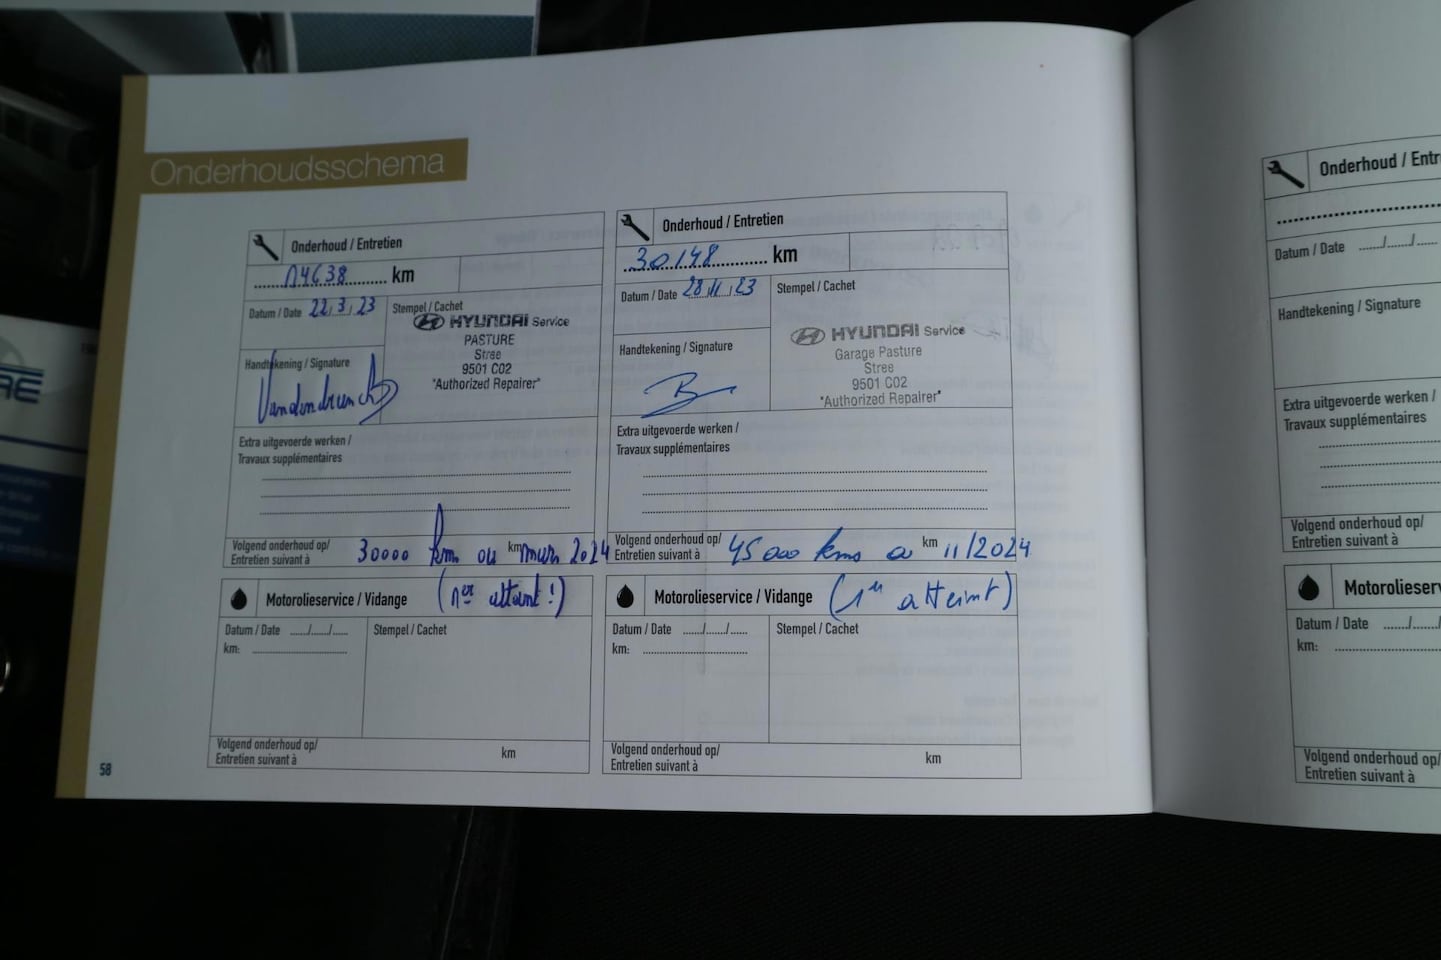 Onderhoudsschema
Onderhoud / Entretien
14638 km
Datum / Date 22/3/23
Stempel / Cachet
HYUNDAI Service
PASTURE
Stree
9501 C02
"Authorized Repairer"
Handtekening / Signature
Extra uitgevoerde werken /
Travaux supplémentaires
Volgend onderhoud op/
Entretien suivant à
30000 km ou km mars 2024
(1er atteint !)
Motorolieservice / Vidange
Datum / Date ....../....../......
Stempel / Cachet
km:
Volgend onderhoud op/
Entretien suivant à
km
Onderhoud / Entretien
30148 km
Datum / Date 28/11/23
Stempel / Cachet
HYUNDAI Service
Garage Pasture
Stree
9501 C02
"Authorized Repairer"
Handtekening / Signature
Extra uitgevoerde werken /
Travaux supplémentaires
Volgend onderhoud op/
Entretien suivant à
45000 kms km 11/2024
(1er atteint)
Motorolieservice / Vidange
Datum / Date ....../....../......
Stempel / Cachet
km:
Volgend onderhoud op/
Entretien suivant à
km
58
Onderhoud / Entr
Datum / Date ....../....../......
Handtekening / Signature
Extra uitgevoerde werken /
Travaux supplémentaires
Volgend onderhoud op/
Entretien suivant à
Motorolieserv
Datum / Date ....../....../......
km:
Volgend onderhoud op/
Entretien suivant à